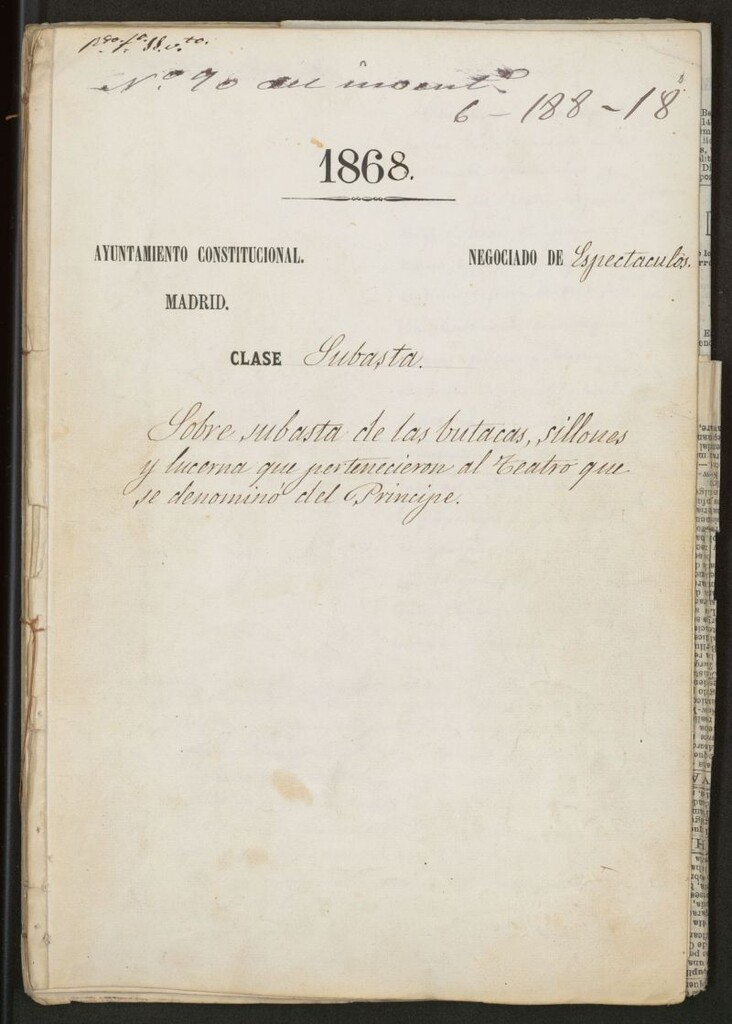 Nº 90 del invent.º
6-188-18
1868.
AYUNTAMIENTO CONSTITUCIONAL.
MADRID.
NEGOCIADO DE Espectaculos.
CLASE Subasta.
Sobre subasta de las butacas, sillones
y lucerna que pertenecieron al Teatro que
se denominó del Principe.